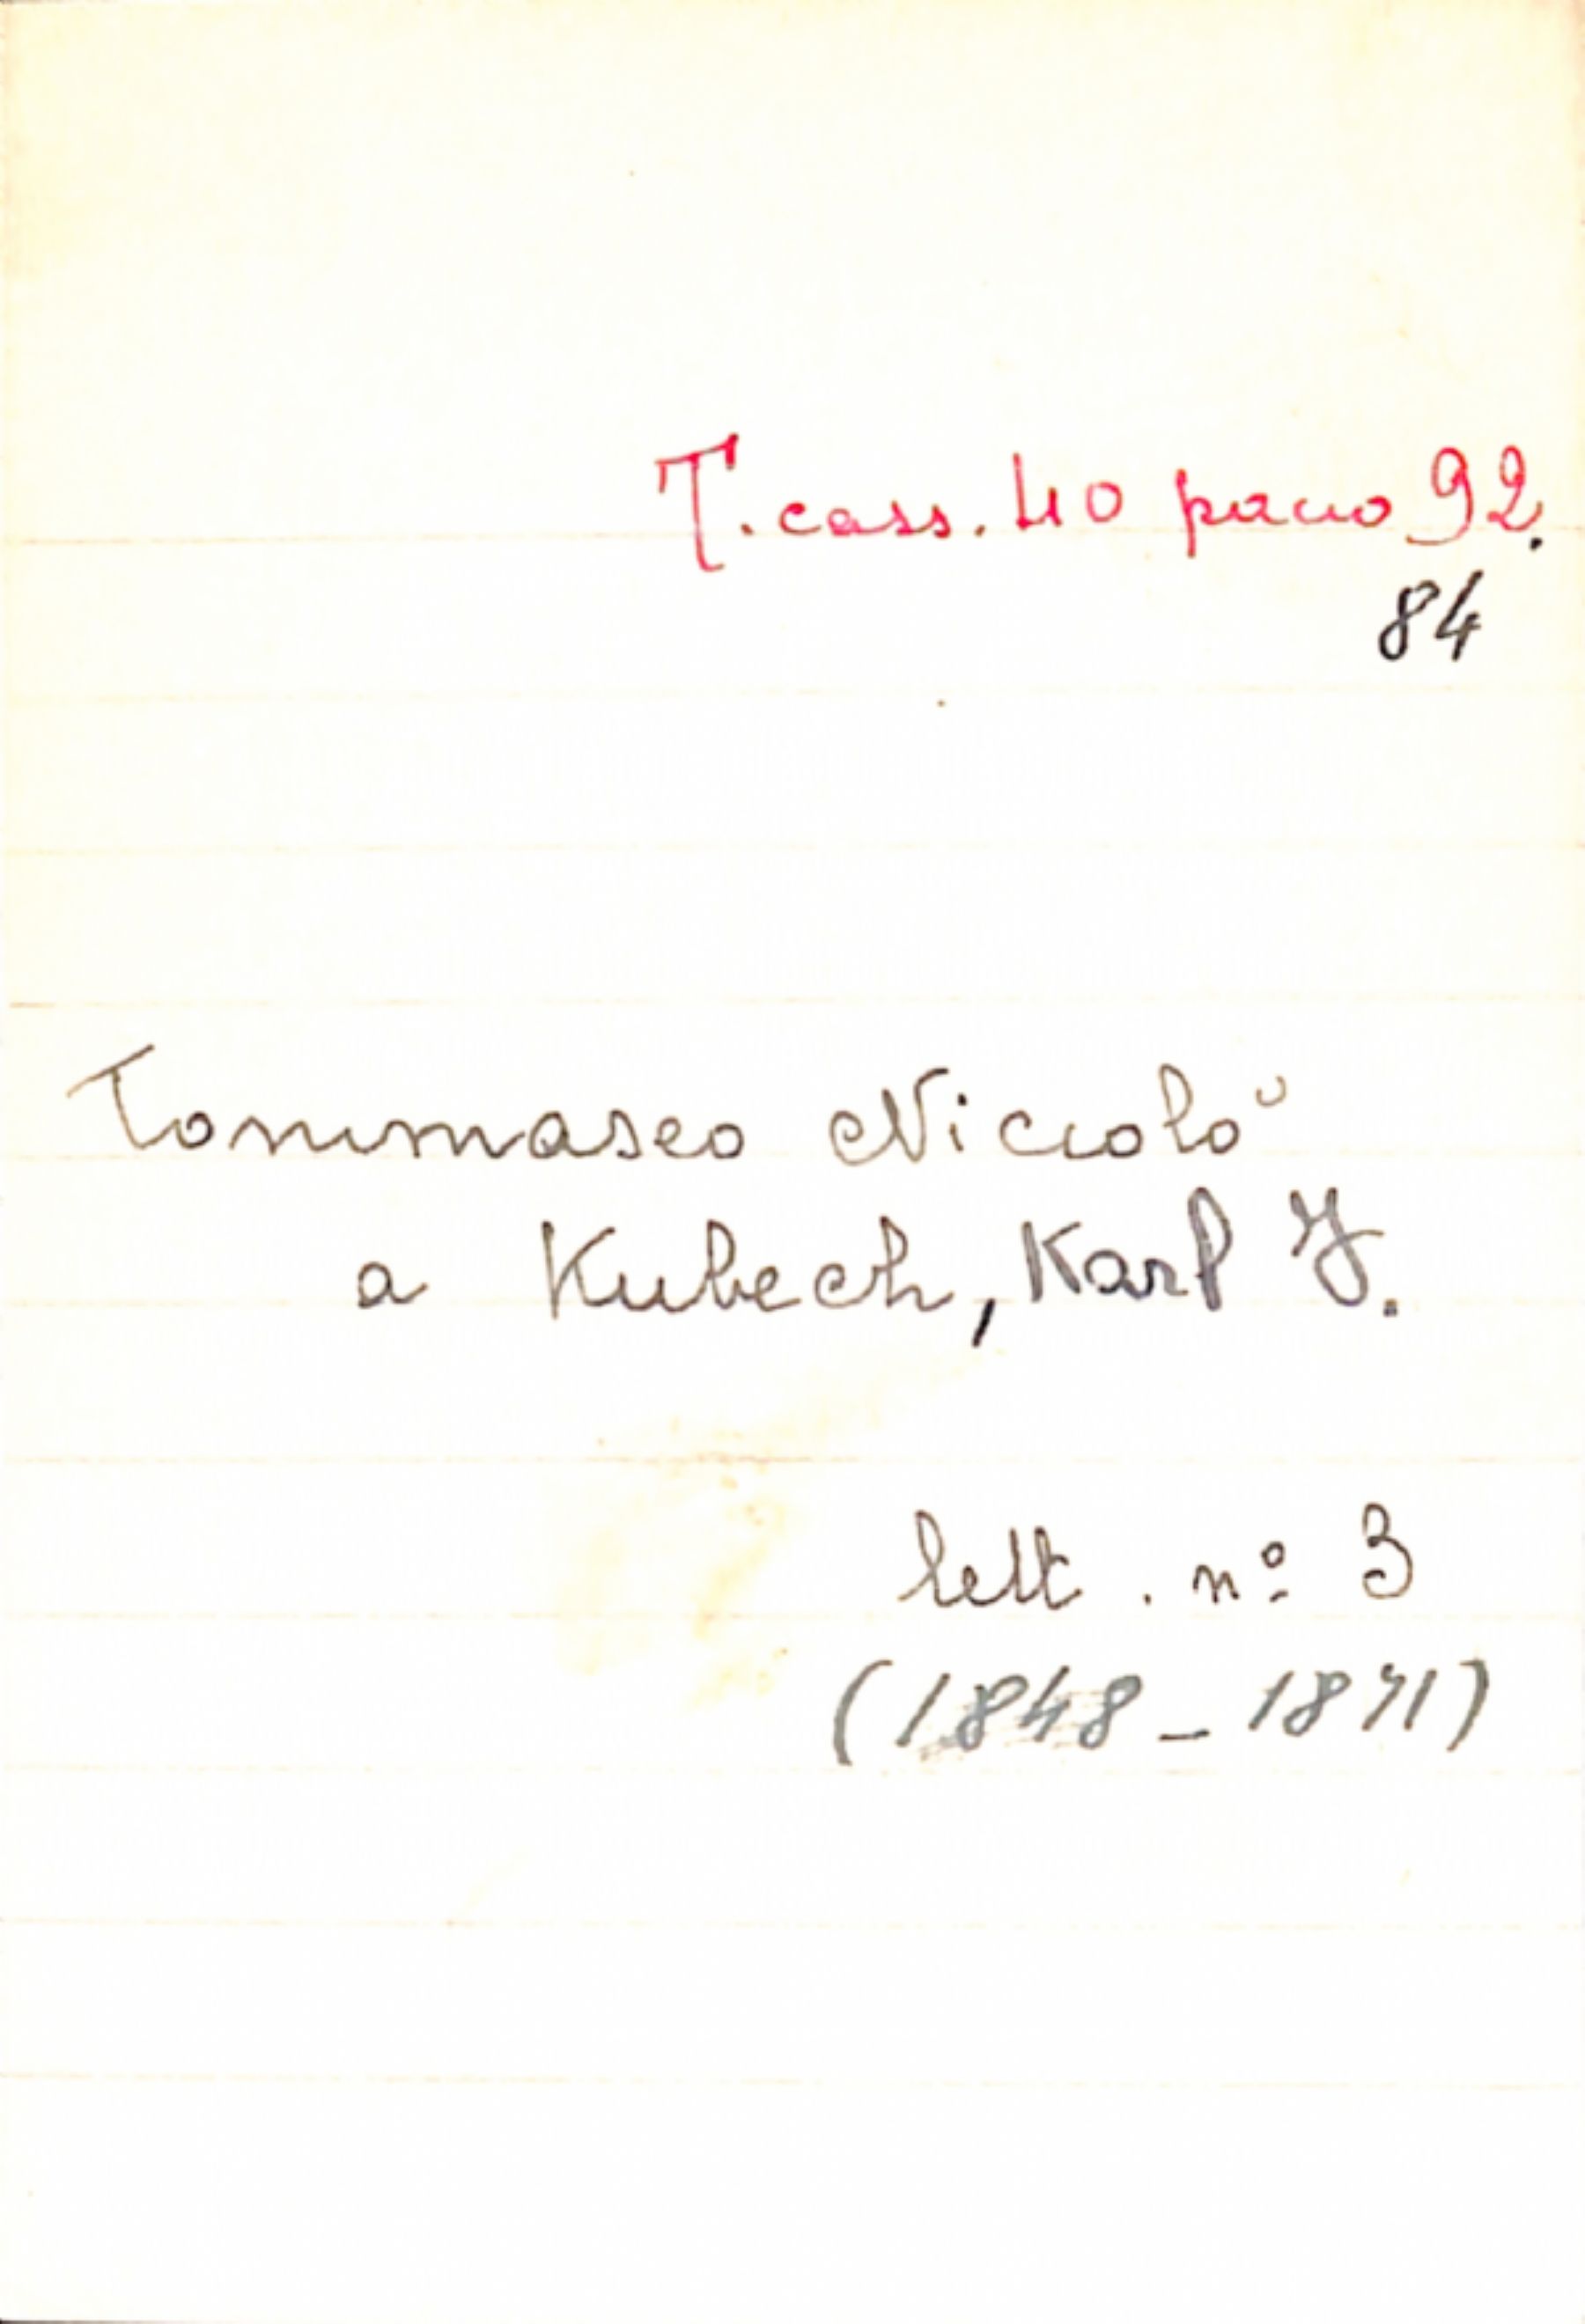 T. cass. 40 pacco 92.
84
Tommaseo Niccolò
a Kubech, Karl J.
lett. nº 3
(1848-1871)